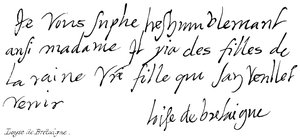 Je vous suplie tres humblemant
ausi madame Il yia des filles de
la raine vre fille qui san veullet
venir
loise de bretaigne
Loyse de Bretaigne.